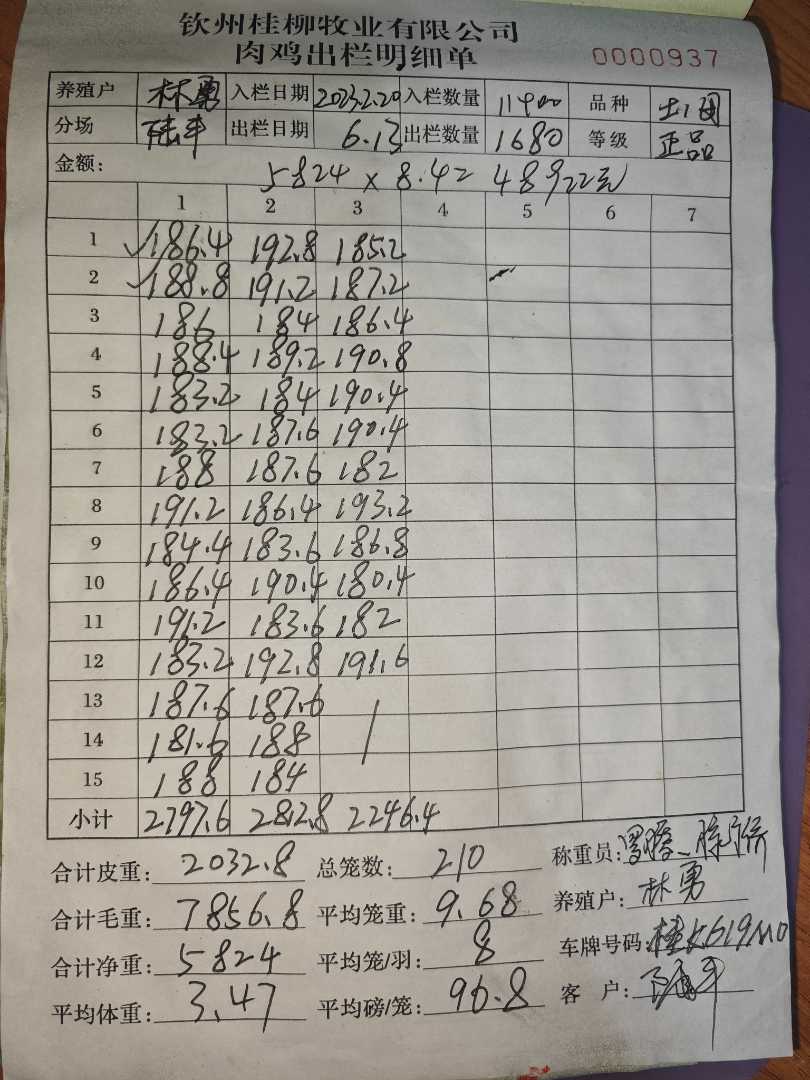 钦州桂柳牧业有限公司
肉鸡出栏明细单 0000937
养殖户 林勇 入栏日期 2023.2.20 入栏数量 11400 品种 土1
分场 陆平 出栏日期 6.13 出栏数量 1680 等级 正品
金额: 5824 x 8.4= 48922元
1 2 3 4 5 6 7
1 186.4 192.8 185.2
2 188.8 191.2 187.2
3 186 184 186.4
4 188.4 189.2 190.8
5 183.2 184 190.4
6 183.2 187.6 190.4
7 188 187.6 182
8 191.2 186.4 193.2
9 184.4 183.6 186.8
10 186.4 190.4 180.4
11 191.2 183.6 182
12 183.2 192.8 191.6
13 187.6 187.6
14 181.6 188
15 188 184
小计 2797.6 2812.8 2246.4
合计皮重: 2032.8 总笼数: 210 称重员:
合计毛重: 7856.8 平均笼重: 9.68 养殖户: 林勇
合计净重: 5824 平均笼/羽: 8 车牌号码: 桂K619M0
平均体重: 3.47 平均磅/笼: 96.8 客 户: